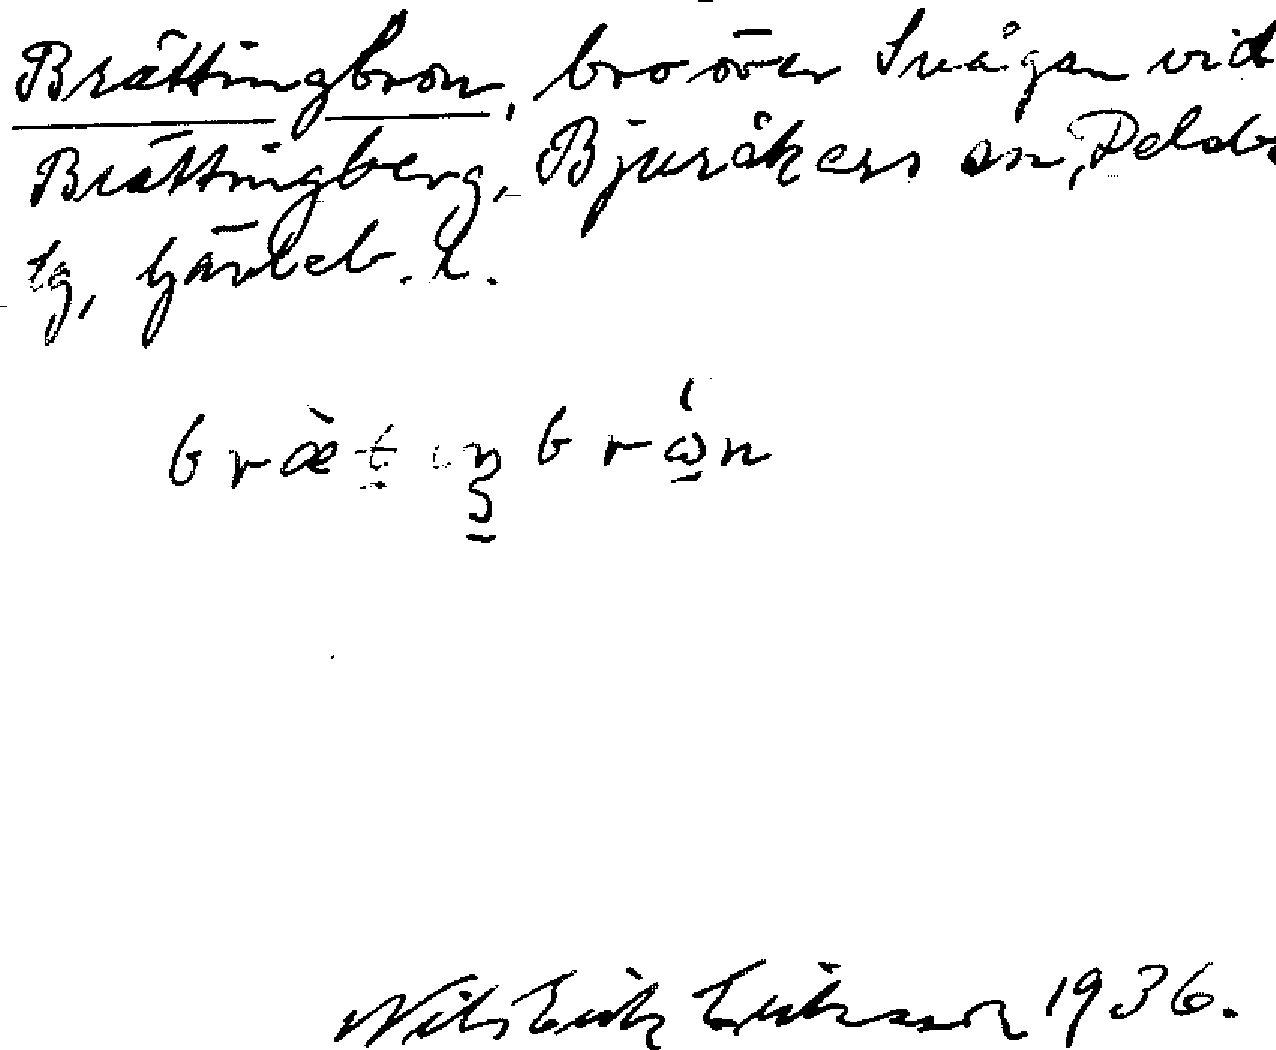 Brättingbron, bro över Svågan vid
Brättingberg, Bjuråkers sn, Delsbo
tg, Gävleb. l.
bræ̀tiŋbrón
Nils Erik Eriksson 1936.